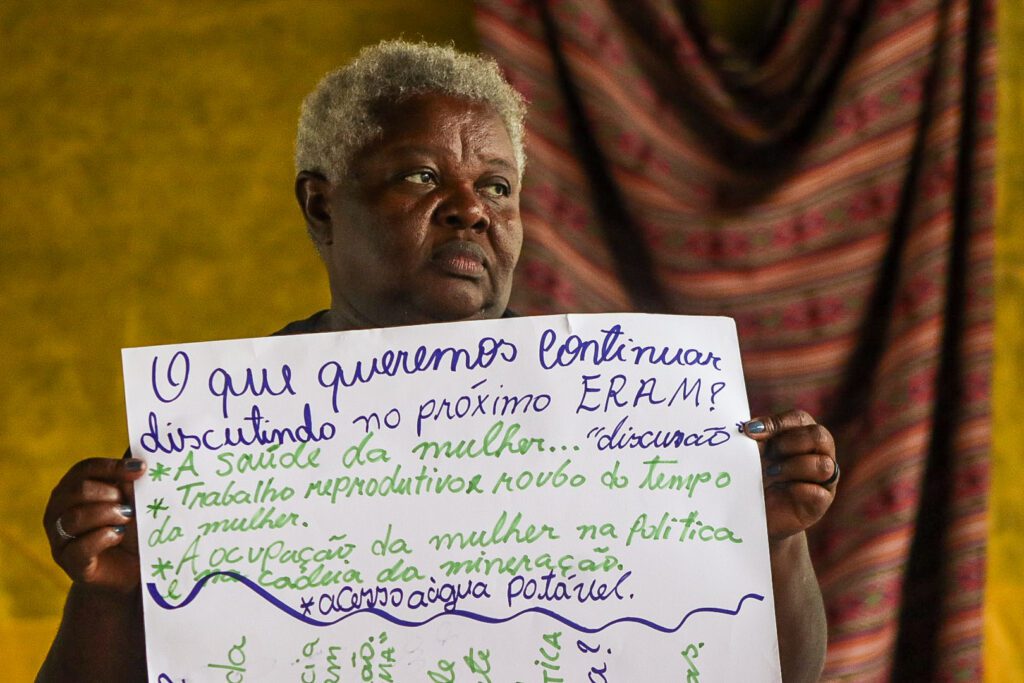 O que queremos continuar
discutindo no próximo ERAM?
*A saúde da mulher... "discusão"
*Trabalho reprodutivo x roubo do tempo
da mulher.
*A ocupação da mulher na Política
e na cadeia da mineração.
*acesso a água potável.
da